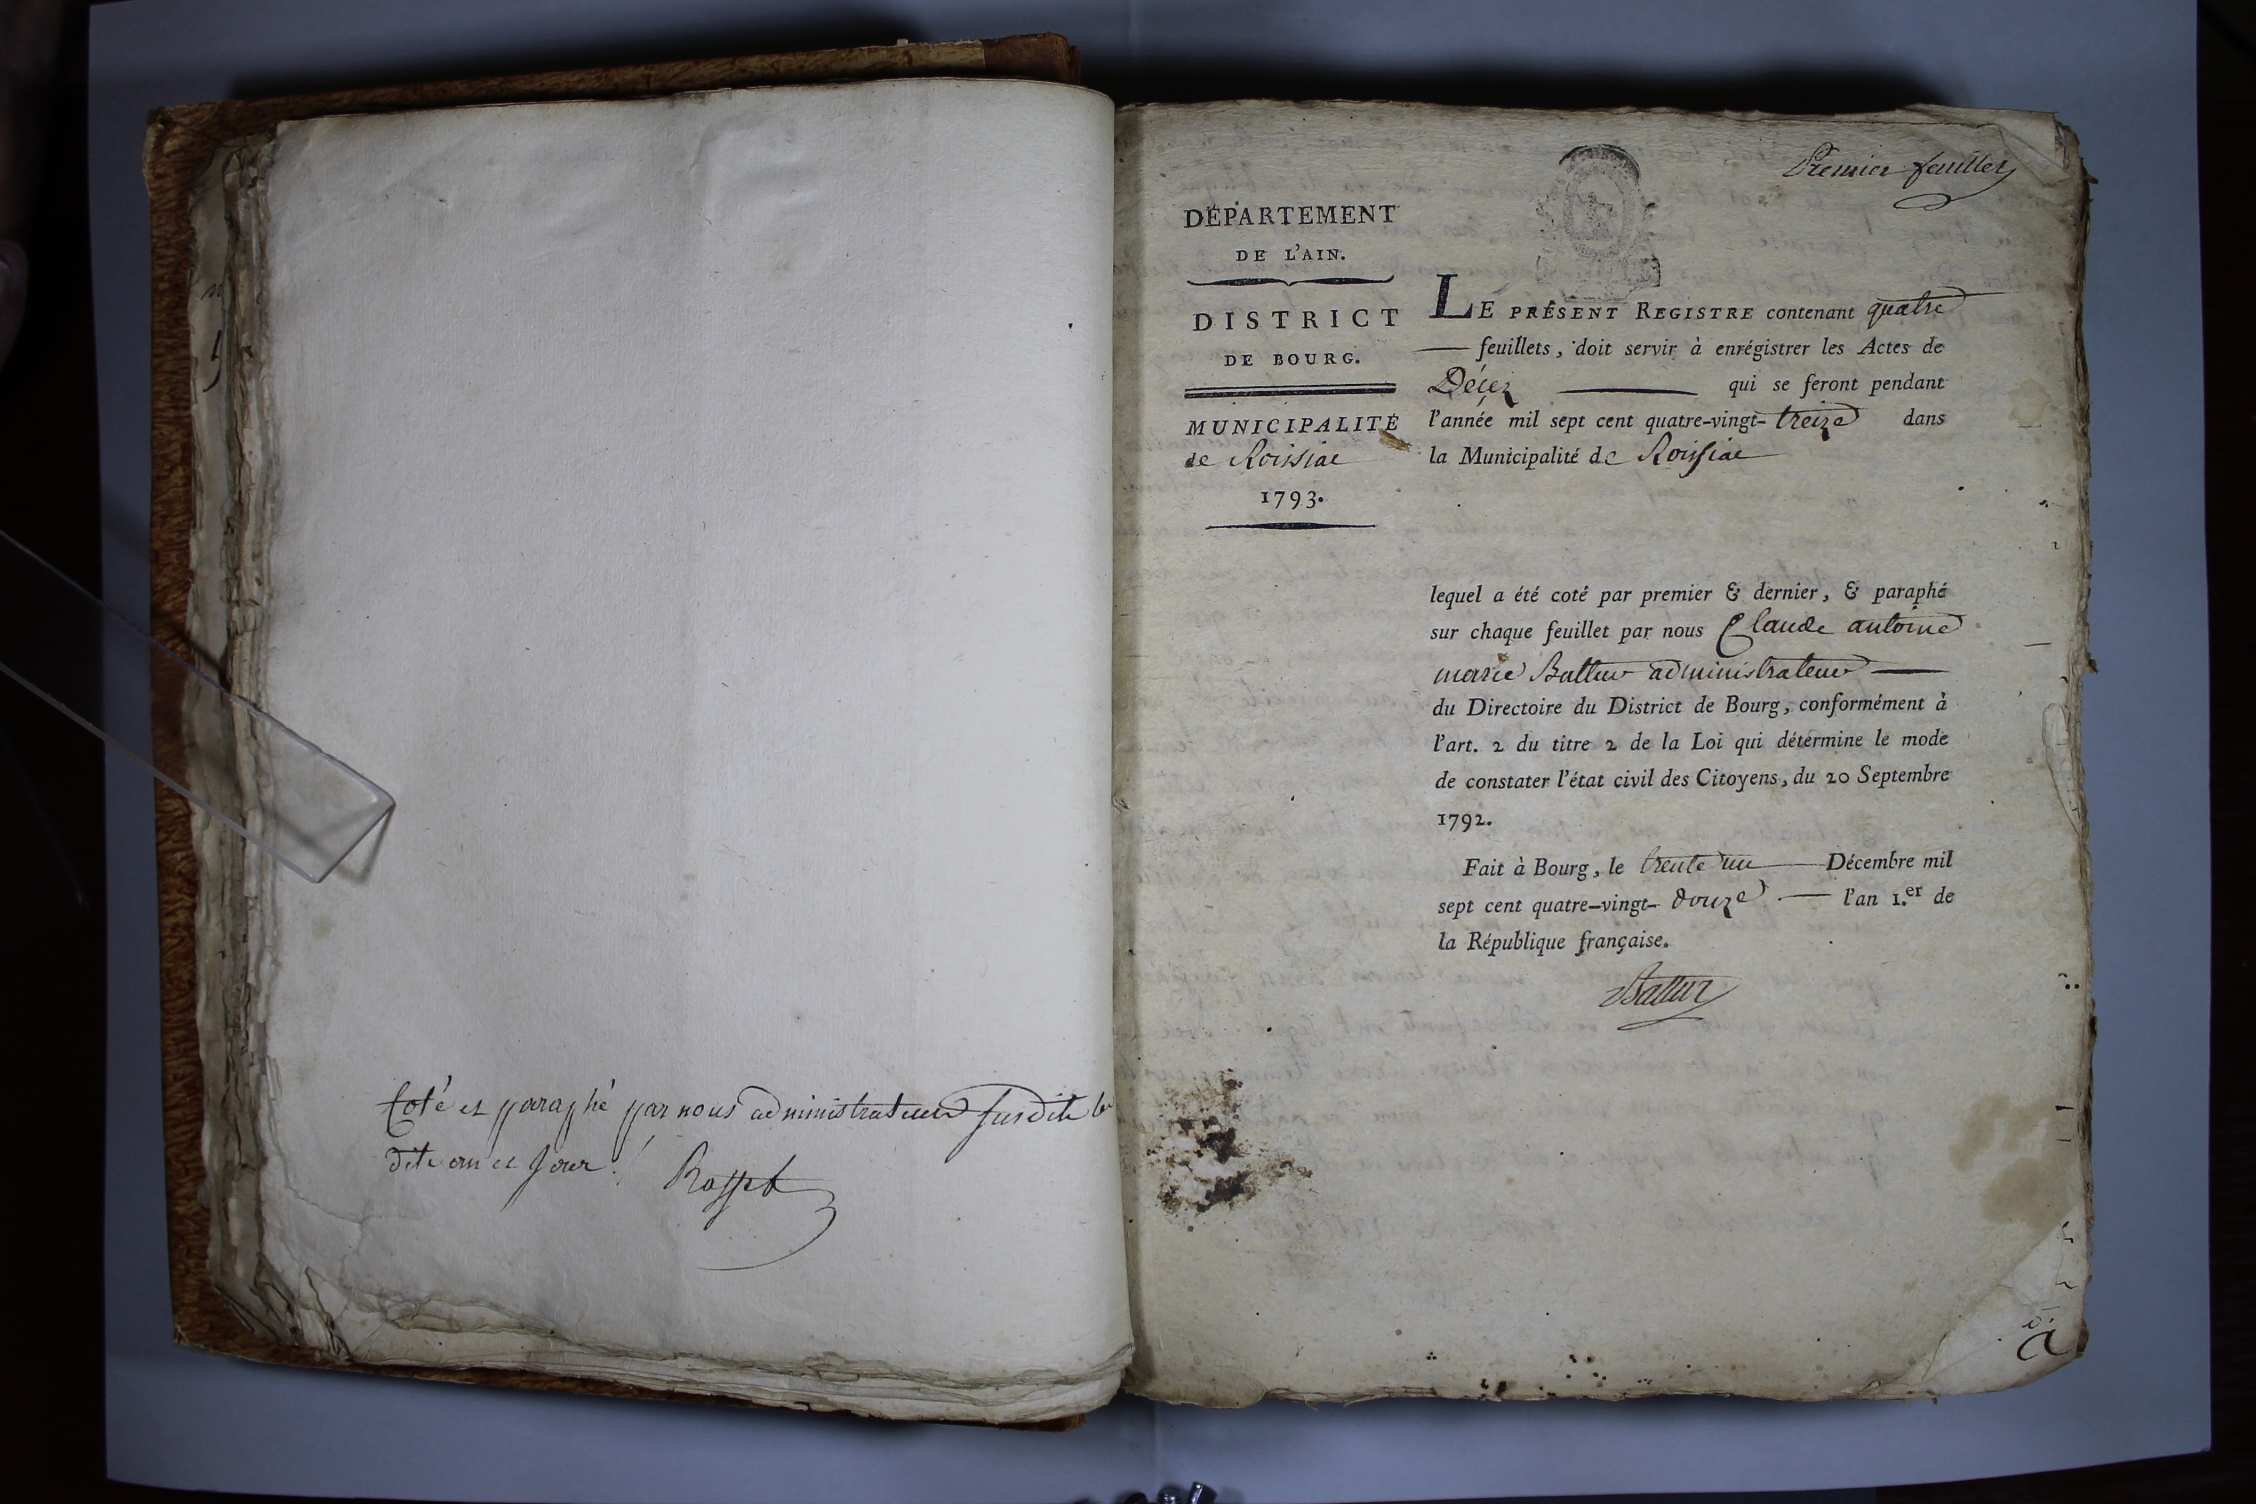 Coté et paraphé par nous administrateur susdit le
dite an et Jour.
Premier feuillet
DÉPARTEMENT
DE L'AIN.
DISTRICT
DE BOURG.
MUNICIPALITÉ
de Roissiac
1793.
LE PRÉSENT REGISTRE contenant quatre
feuillets, doit servir à enrégistrer les Actes de
Décez qui se feront pendant
l'année mil sept cent quatre-vingt-treize dans
la Municipalité de Roissiac
lequel a été coté par premier & dernier, & paraphé
sur chaque feuillet par nous Claude antoine
marie Battur administrateur
du Directoire du District de Bourg, conformément à
l'art. 2 du titre 2 de la Loi qui détermine le mode
de constater l'état civil des Citoyens, du 20 Septembre
1792.
Fait à Bourg, le trente un Décembre mil
sept cent quatre-vingt-douze l'an 1.er de
la République française.